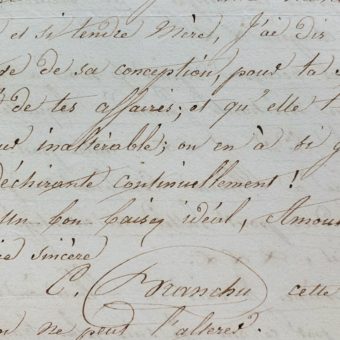 et si tendre Mère, j'ai dis
de sa conception, pour ta
de tes affaires; et qu'elle t
inaltérable; on en à si g
déchirante continuellement!
Un bon baiser idéal, Amour
sincère
C. Branchu cette
ne peut l'alterer.